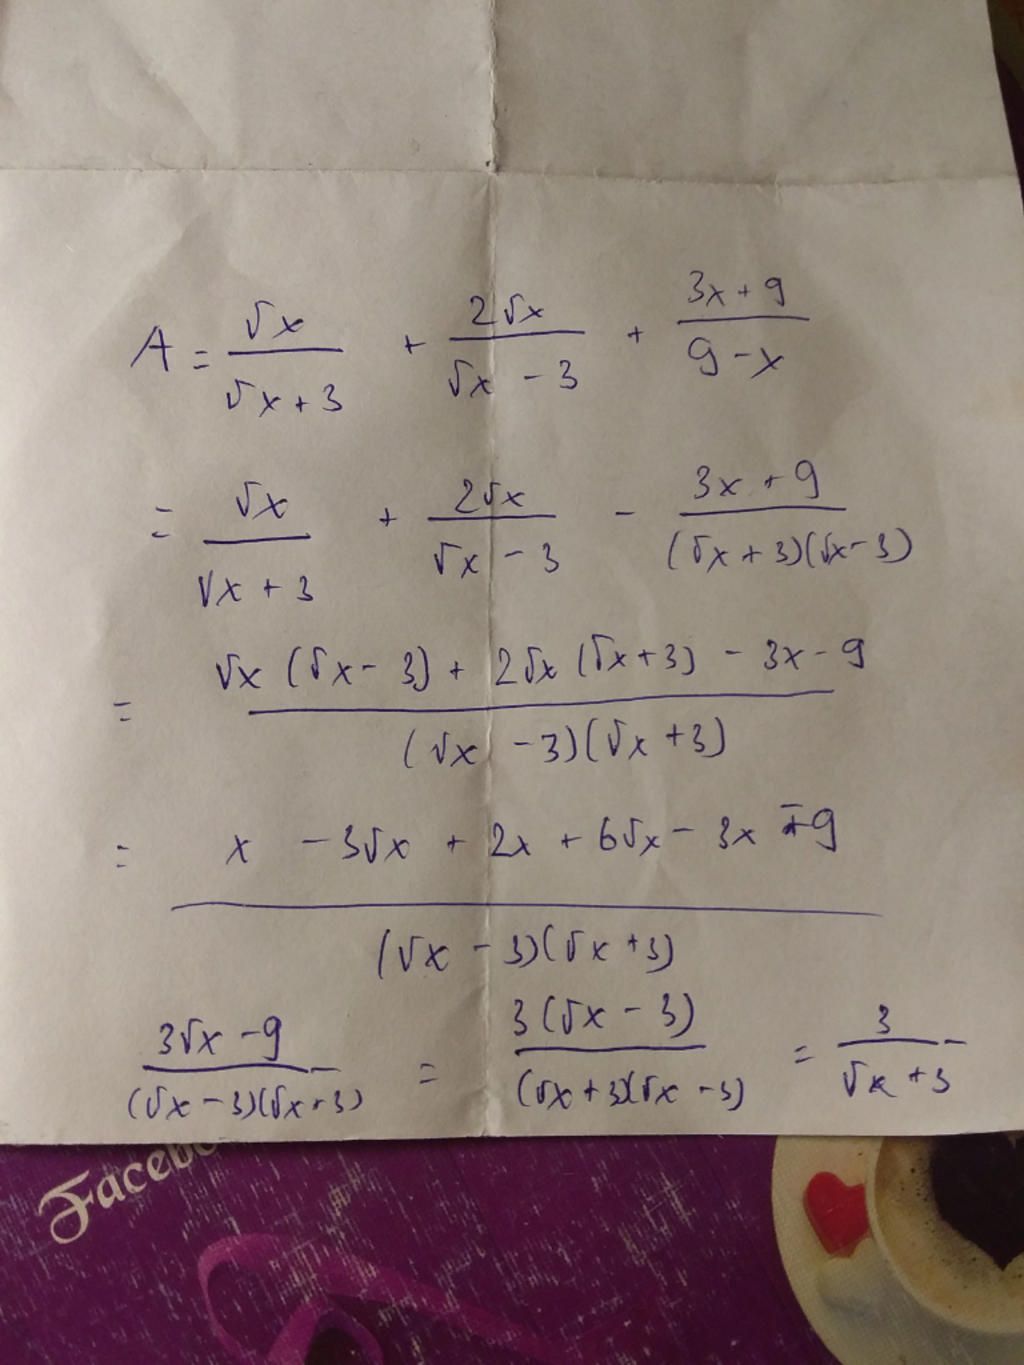 A = √x / (√x + 3) + 2√x / (√x - 3) + (3x + 9) / (9 - x)
= √x / (√x + 3) + 2√x / (√x - 3) - (3x + 9) / ((√x + 3)(√x - 3))
= (√x (√x - 3) + 2√x (√x + 3) - 3x - 9) / ((√x - 3)(√x + 3))
= (x - 3√x + 2x + 6√x - 3x - 9) / ((√x - 3)(√x + 3))
(3√x - 9) / ((√x - 3)(√x + 3)) = 3(√x - 3) / ((√x + 3)(√x - 3)) = 3 / (√x + 3)